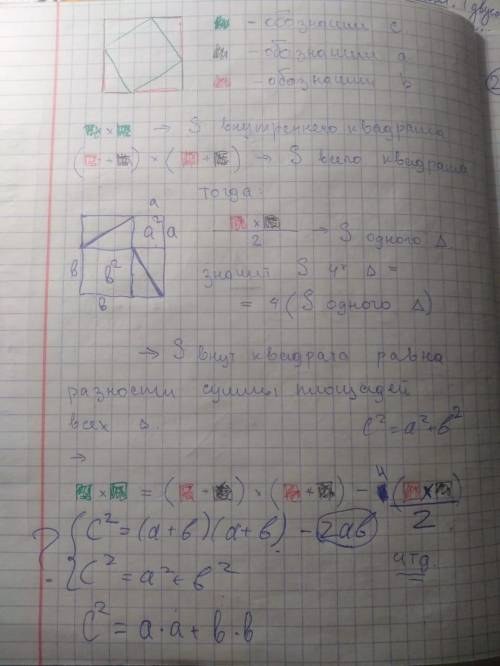 – обозначим c
– обозначим a
– обозначим b
× → S внутреннего квадрата
( + ) × ( + ) → S всего квадрата
тогда:
a
a² a
b b²
b
×
2
→ S одного Δ
значит S 4х Δ =
= 4 (S одного Δ)
→ S внут квадрата равна
разности суммы площадей
всех Δ.
c² = a² + b²
⇒
× = ( + ) × ( + ) – 4 ( × )
2
? { c² = (a + b)(a + b) – 2ab
c² = a² + b²
итд.
c² = a · a + b · b